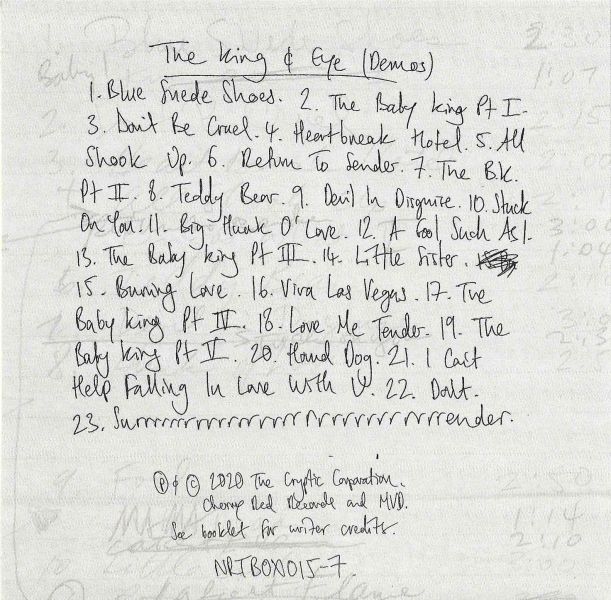 The King & Eye (Demos)
1. Blue Suede Shoes. 2. The Baby King Pt I.
3. Don't Be Cruel. 4. Heartbreak Hotel. 5. All
Shook Up. 6. Return To Sender. 7. The B.K.
Pt II. 8. Teddy Bear. 9. Devil In Disguise. 10. Stuck
On You. 11. Big Hunk O' Love. 12. A Fool Such As I.
13. The Baby King Pt III. 14. Little Sister.
15. Burning Love. 16. Viva Las Vegas. 17. The
Baby King Pt IV. 18. Love Me Tender. 19. The
Baby King Pt V. 20. Hound Dog. 21. I Can't
Help Falling In Love With U. 22. Don't.
23. Surrrrrrrrrrrrrrrrrrrrrrrrrender.
℗ & © 2020 The Cryptic Corporation.
Cherry Red Records and MVD.
See booklet for writer credits.
NRTBOX015-7.
Baby!
2:30
1:07
1:04
1:14
2:10